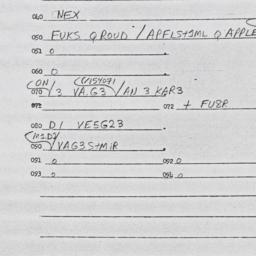 040 NEX
050 FUKS Q ROUD / APFLS+1ML Q APPLE
051 0
060 0
(ON
070 /3 VA.G3 / AN 3 KAR3
072 072 + FU8R
080 D/ VE5G23
090 / VAG3S+MiR
091 0 092 0
093 0 094 0